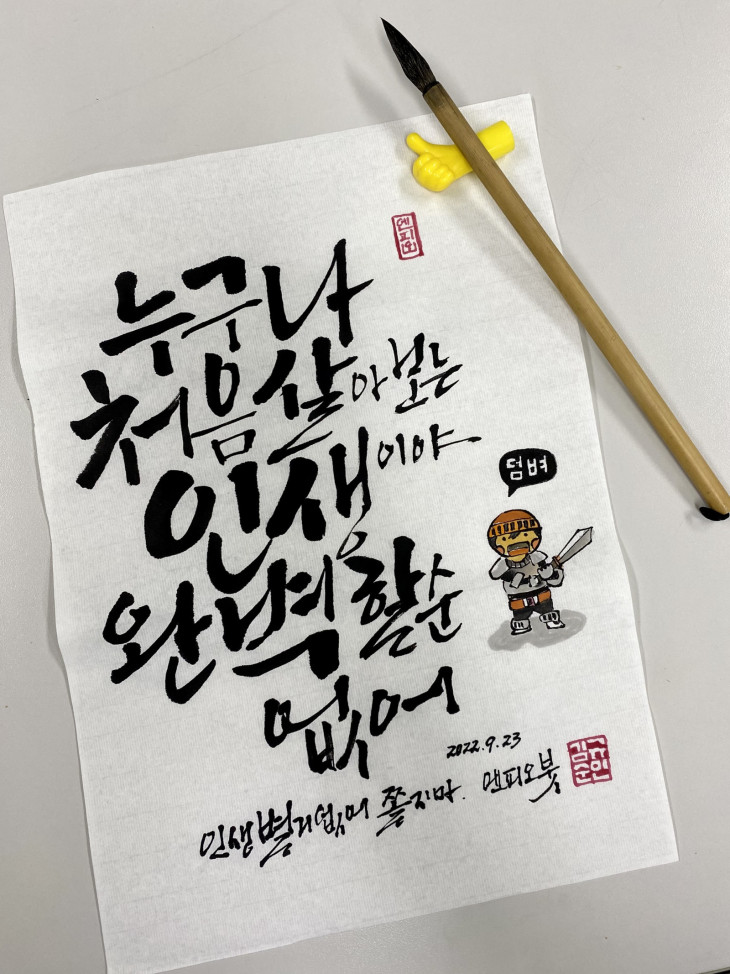 엔피오
누구나
처음 살아보는
인생이야
완벽할 순
없어
덤벼
2022.9.23
인생 별거 없어 쫄지마. 엔피오붓